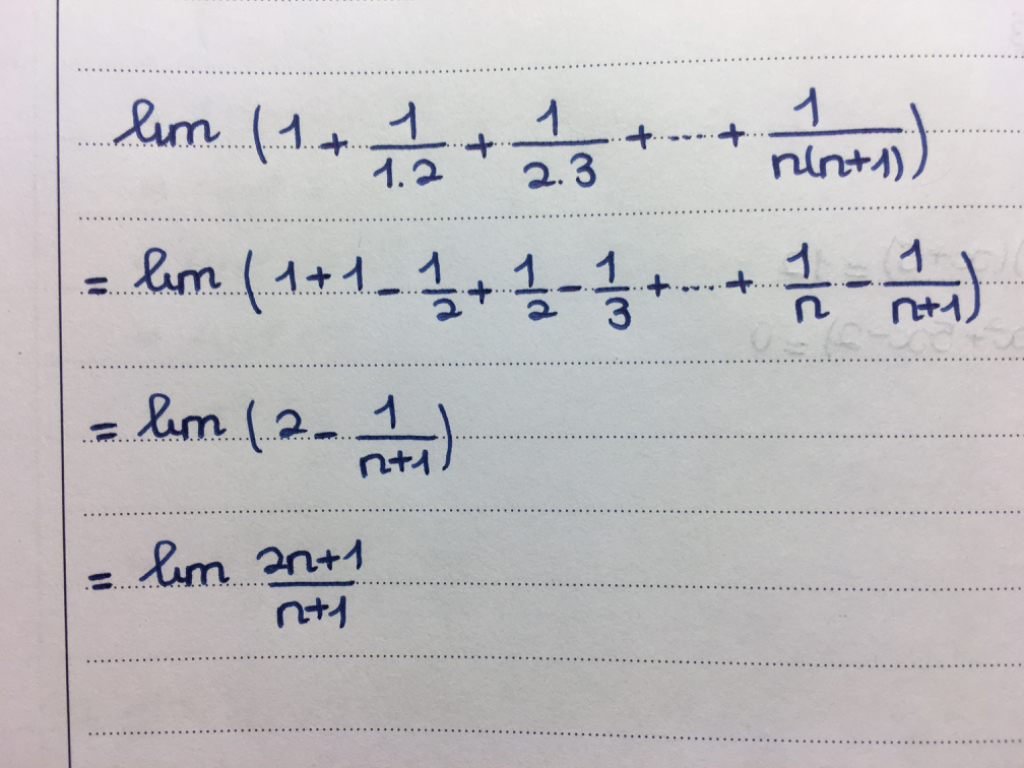 lim (1 + 1/1.2 + 1/2.3 + ... + 1/n(n+1))
= lim (1 + 1 - 1/2 + 1/2 - 1/3 + ... + 1/n - 1/n+1)
= lim (2 - 1/n+1)
= lim 2n+1/n+1